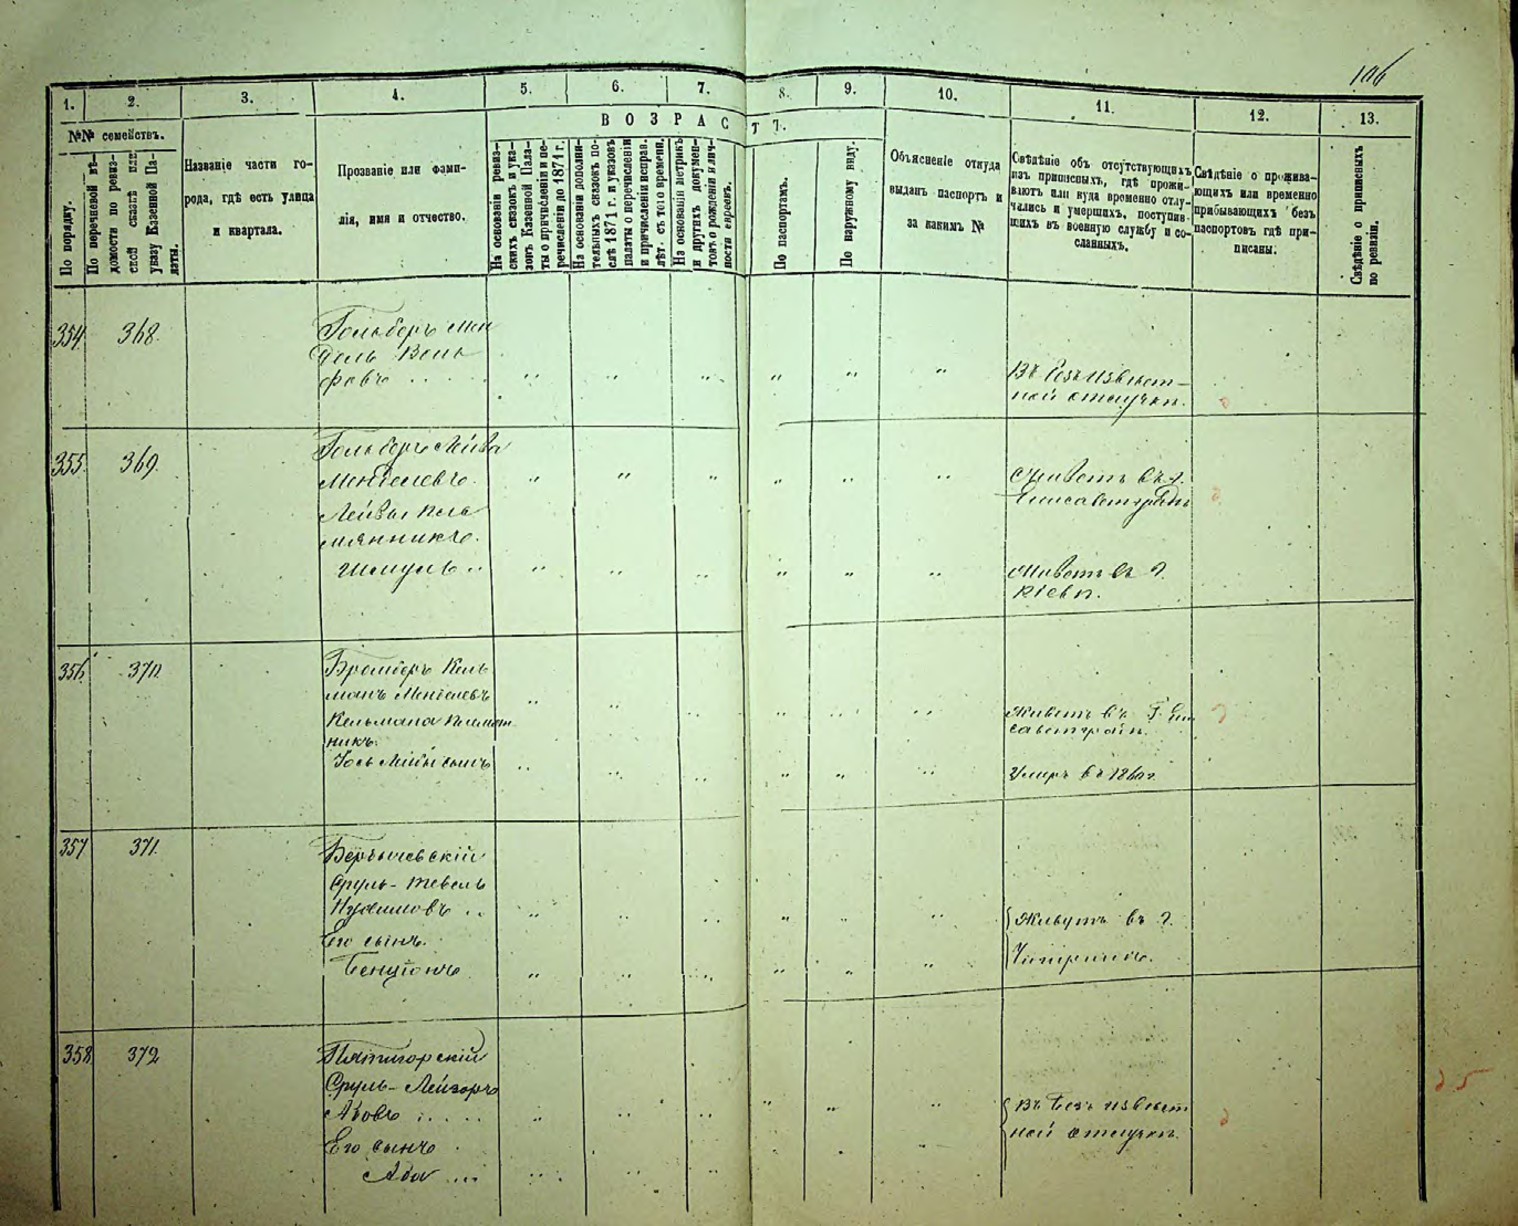 106
1. 2. 3. 4. 5. 6. 7. 8. 9. 10. 11. 12. 13.
№№ семействъ.
В О З Р А С Т Ъ.
По порядку.
По перечневой вѣ-
домости по ревиз-
ской сказкѣ или
указу Казенной Па-
латы.
Названіе части го-
рода, гдѣ есть улица
и квартала.
Прозваніе или фами-
лія, имя и отчество.
На основаніи ревиз-
скихъ сказокъ и ука-
зовъ Казенной Пала-
ты о причисленіи и пе-
речисленіи до 1871 г.
На основаніи дополни-
тельныхъ сказокъ по-
слѣ 1871 г. и указовъ
палаты о перечисленіи
и причисленіи исправ.
лѣт. съ того времени.
На основаніи метрикъ
и другихъ докумен-
товъ о рожденіи и лич-
ности евреевъ.
По паспортамъ.
По наружному виду.
Объясненіе откуда
выданъ паспортъ и
за какимъ №
Свѣдѣніе объ отсутствующихъ
изъ приписныхъ, гдѣ прожи-
ваютъ или куда временно отлу-
чились и умершихъ, поступив-
шихъ въ военную службу и со-
сланныхъ.
Свѣдѣніе о прожива-
ющихъ или временно
прибывающихъ безъ
паспортовъ гдѣ при-
писаны.
Свѣдѣніе о приписныхъ
по ревизіи.
354 368. Гольберъ Мен
дель Воль
фовъ . . . . " " " " " " Въ безъизвѣст-
ной отлучкѣ.
355. 369. Гольберъ Лейба
Менделевъ. " " " " " " Живетъ въ г.
Елисаветградѣ
Лейбы пле
мянникъ.
Шмуль .. " " " " " " Живетъ въ г.
Кіевѣ.
356 370 Бромберъ Кель
манъ Менделевъ " " " " " " Живетъ въ Г. Ели
саветградѣ.
Кельмана племян
никъ.
" " " " " " Умеръ въ 1860 г.
357 371. Бердичевскій
Сруль-Тевель
.. " " " " " " Живутъ въ г.
Его сынъ.
Бенціонъ " " " " " " Чигиринѣ.
358 372 Пятигорскій
Сруль-Лейзоръ
Абовъ . . . . " " " " " " Въ безъ извѣст
ной отлучкѣ.
Его сынъ
Аба ... " " "